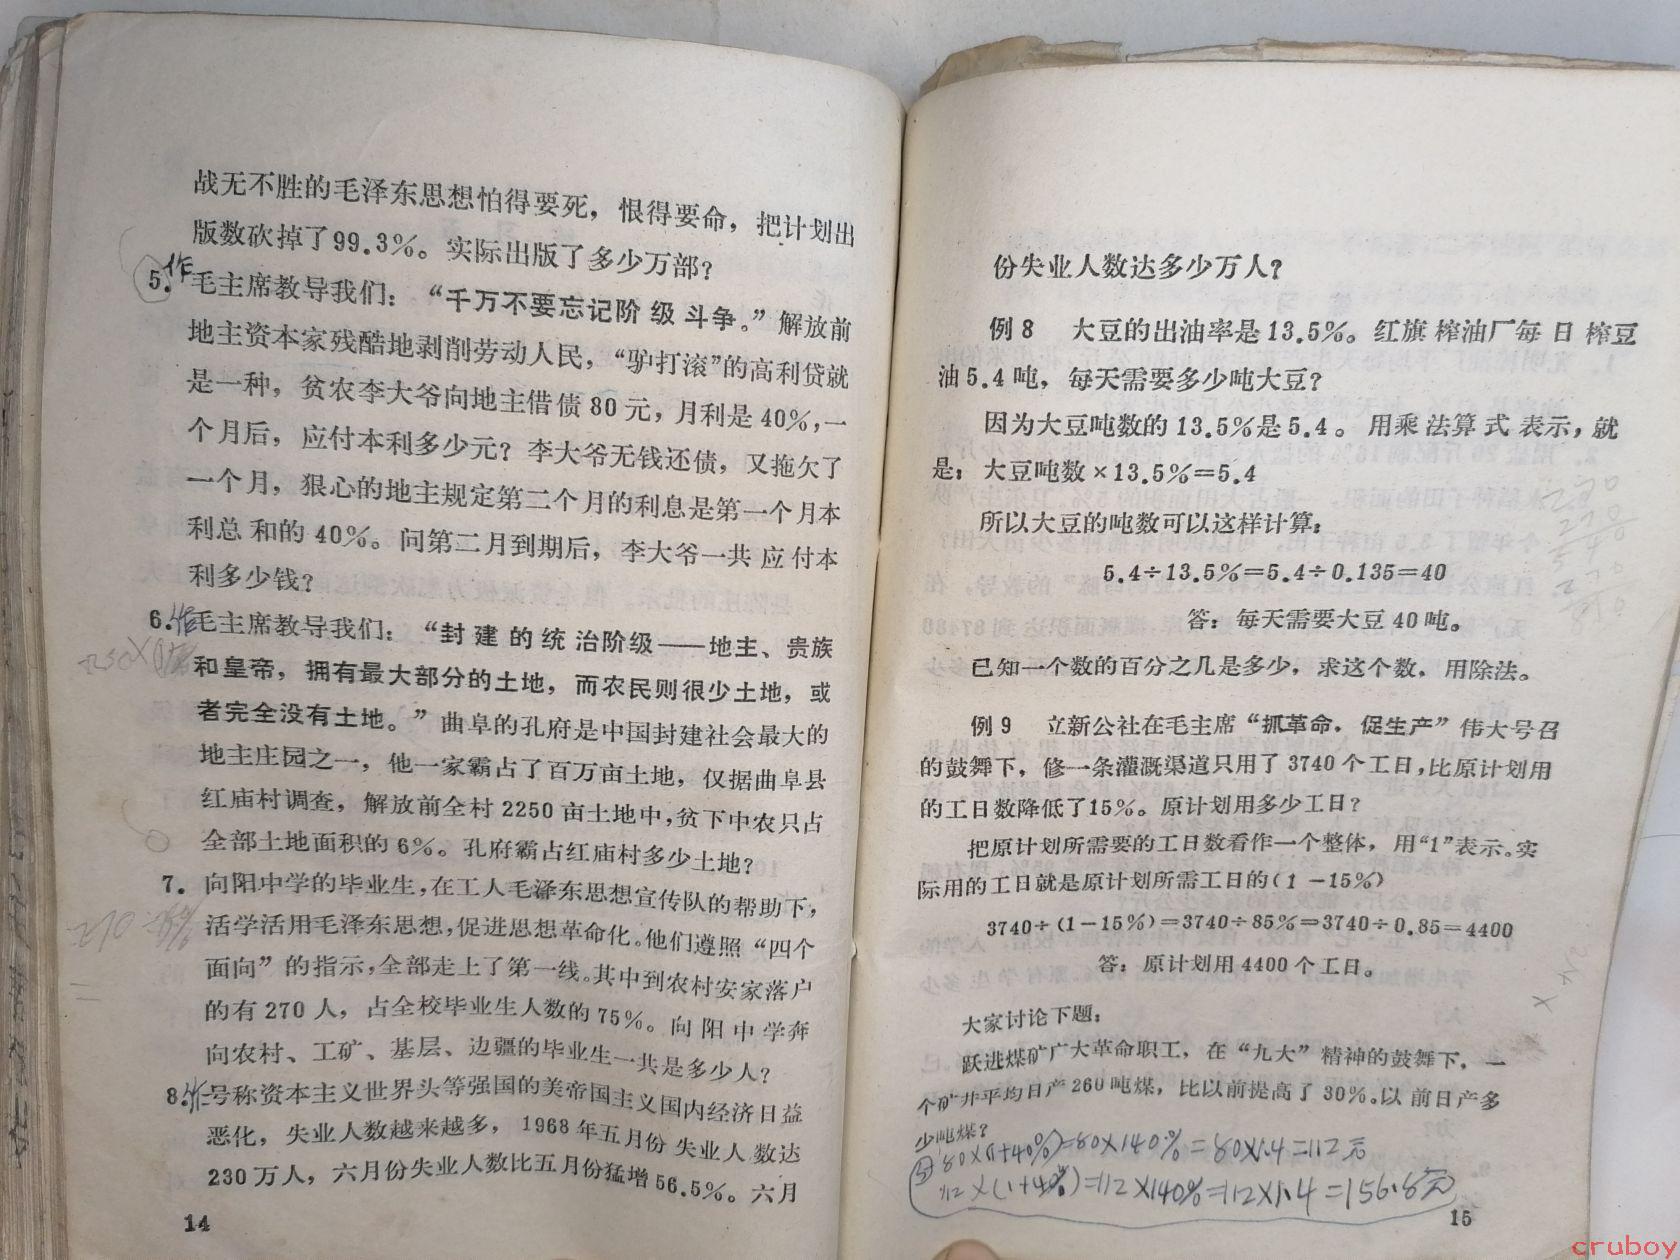 战无不胜的毛泽东思想怕得要死，恨得要命，把计划出
版数砍掉了99.3%。实际出版了多少万部？
5.作毛主席教导我们：“千万不要忘记阶级斗争。”解放前
地主资本家残酷地剥削劳动人民，“驴打滚”的高利贷就
是一种，贫农李大爷向地主借债80元，月利是40%，一
个月后，应付本利多少元？李大爷无钱还债，又拖欠了
一个月，狠心的地主规定第二个月的利息是第一个月本
利总和的40%。问第二月到期后，李大爷一共应付本
利多少钱？
6.作毛主席教导我们：“封建的统治阶级——地主、贵族
和皇帝，拥有最大部分的土地，而农民则很少土地，或
者完全没有土地。”曲阜的孔府是中国封建社会最大的
地主庄园之一，他一家霸占了百万亩土地，仅据曲阜县
红庙村调查，解放前全村2250亩土地中，贫下中农只占
全部土地面积的6%。孔府霸占红庙村多少土地？
7.向阳中学的毕业生，在工人毛泽东思想宣传队的帮助下，
活学活用毛泽东思想，促进思想革命化。他们遵照“四个
面向”的指示，全部走上了第一线。其中到农村安家落户
的有270人，占全校毕业生人数的75%。向阳中学奔
向农村、工矿、基层、边疆的毕业生一共是多少人？
8.作号称资本主义世界头等强国的美帝国主义国内经济日益
恶化，失业人数越来越多，1968年五月份失业人数达
230万人，六月份失业人数比五月份猛增56.5%。六月
14
份失业人数达多少万人？
例8 大豆的出油率是13.5%。红旗榨油厂每日榨豆
油5.4吨，每天需要多少吨大豆？
因为大豆吨数的13.5%是5.4。用乘法算式表示，就
是：大豆吨数×13.5%＝5.4
所以大豆的吨数可以这样计算：
5.4÷13.5%＝5.4÷0.135＝40
答：每天需要大豆40吨。
已知一个数的百分之几是多少，求这个数，用除法。
例9 立新公社在毛主席“抓革命，促生产”伟大号召
的鼓舞下，修一条灌溉渠道只用了3740个工日，比原计划用
的工日数降低了15%。原计划用多少工日？
把原计划所需要的工日数看作一个整体，用“1”表示。实
际用的工日就是原计划所需工日的（1－15%）
3740÷（1－15%）＝3740÷85%＝3740÷0.85＝4400
答：原计划用4400个工日。
大家讨论下题：
跃进煤矿广大革命职工，在“九大”精神的鼓舞下，一
个矿井平均日产260吨煤，比以前提高了30%。以前日产多
少吨煤？
5 80×(1+40%)=80×140%=80×1.4=112元
112×(1+40%)=112×140%=112×1.4=156.8元
15
cruboy